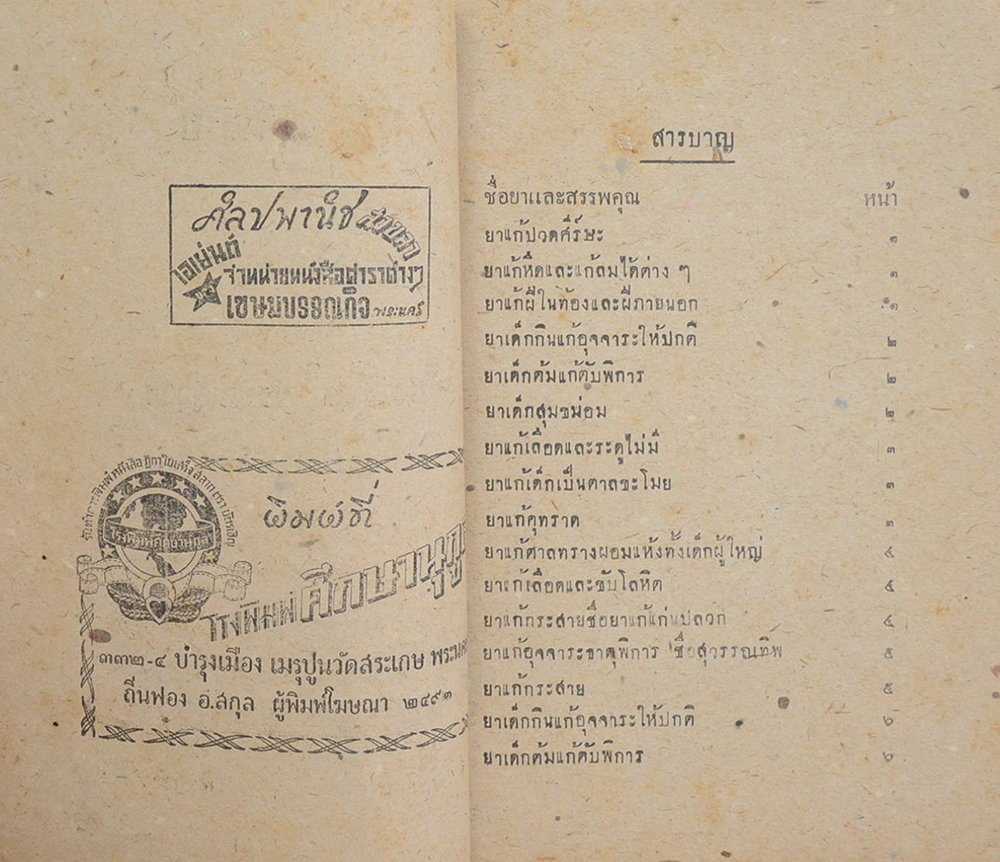 ศิลปพานิช สงขลา
เอเย่นต์
จำหน่ายหนังสือตำราต่างๆ
เขษมบรรณกิจ พระนคร
พิมพ์ที่
โรงพิมพ์ ศึกษานุกู
๓๓๒-๔ บำรุงเมือง เมรุปูนวัดสระเกษ พระนคร
ถีนฟอง อ.สกุล ผู้พิมพ์โฆษณา ๒๔๙๓
สารบาญ
ชื่อยาและสรรพคุณ หน้า
ยาแก้ปวดศีร์ษะ ๑
ยาแก้หืดและแก้ลมได้ต่าง ๆ ๑
ยาแก้ฝีในท้องและฝีภายนอก ๑
ยาเด็กกินแก้อุจจาระให้ปกติ ๒
ยาเด็กต้มแก้ตับพิการ ๒
ยาเด็กสุมขม่อม ๒
ยาแก้เลือดและระดูไม่มี ๓
ยาแก้เด็กเป็นตาลขะโมย ๓
ยาแก้คุทราด ๓
ยาแก้ศาลทรางผอมแห้งทั้งเด็กผู้ใหญ่ ๔
ยาแก้เลือดและขับโลหิต ๔
ยาแก้กระสายชื่อยาแก้แก่นปลวก ๔
ยาแก้อุจจาระธาตุพิการ ชื่อสุวรรณทิพ ๕
ยาแก้กระสาย ๕
ยาเด็กกินแก้อุจจาระให้ปกติ ๖
ยาเด็กต้มแก้ตับพิการ ๖